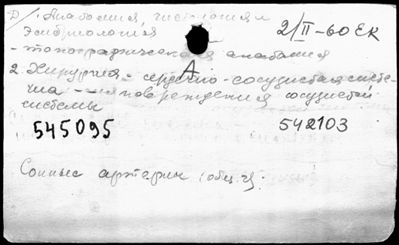 1. Анатомия, гистология и 2/II-60 ЕК
эмбриология
- топографическая анатомия
2. Хирургия - сердечно-сосудистая систе-
ма - повреждения сосудистой
системы
545095 542103
Сонные артерии (общ.ч).